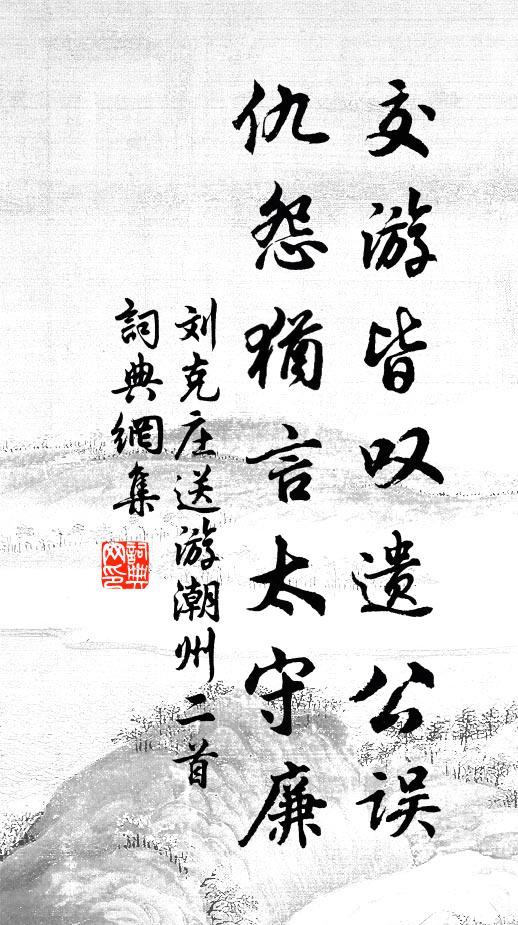 交游皆叹遗公误
仇怨犹言太守廉
刘克庄送游潮州二首
詞典網集
詞典网印